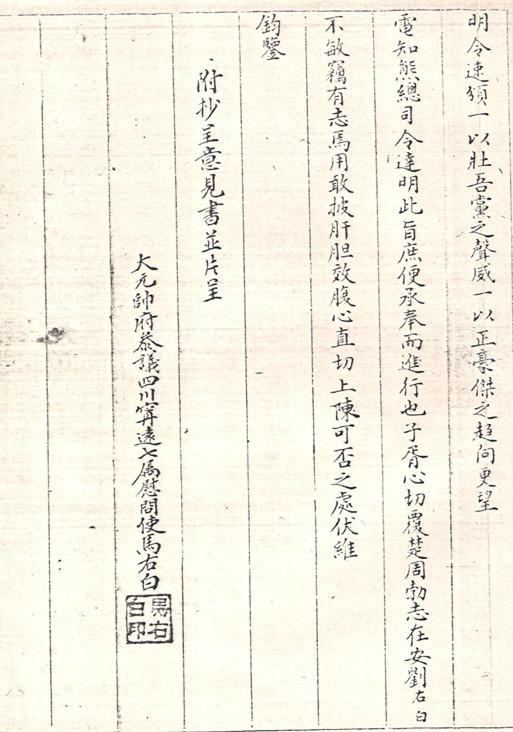 明令速頒一以壯吾黨之聲威一以正豪傑之趨向更望
電知熊總司令達明此旨庶便承奉而進行也子胥心切覆楚周勃志在安劉右白
不敏竊有志焉用敢披肝胆效腹心直切上陳可否之處伏維
鈞鑒
附抄呈意見書並片呈
大元帥府叅議四川寧遠七屬慰問使馬右白
馬右
白印